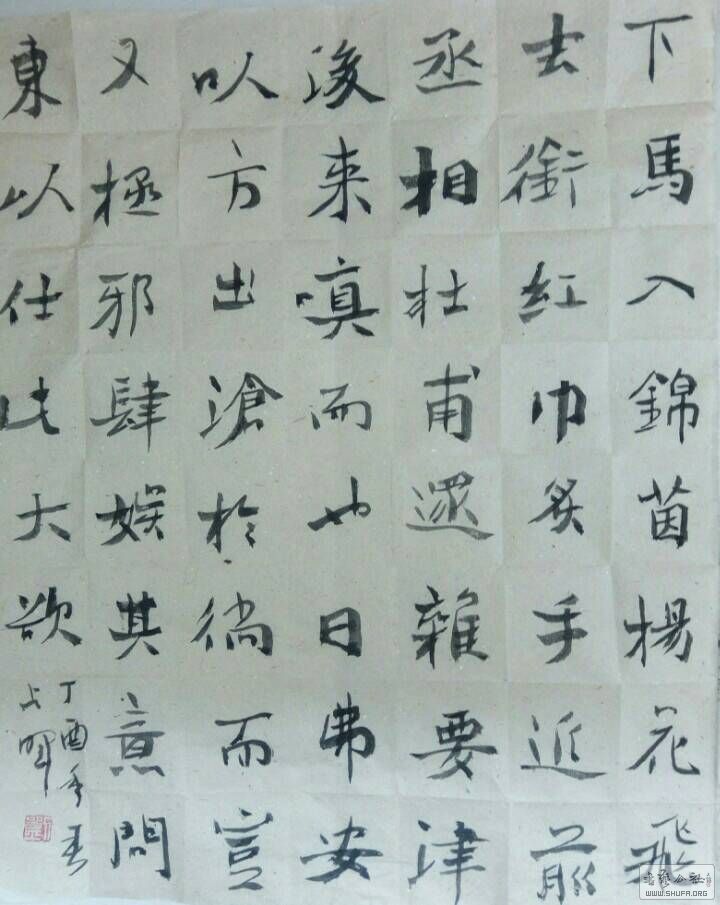 下馬入錦茵楊花飛
去銜紅巾炙手近前
丞相杜甫還雜要津
後来嗔而也日佛安
以方出滄於徜而豈
又極邪肆娛其意問
東以仕大欲
丁酉年春
WWW.SHUFA.ORG